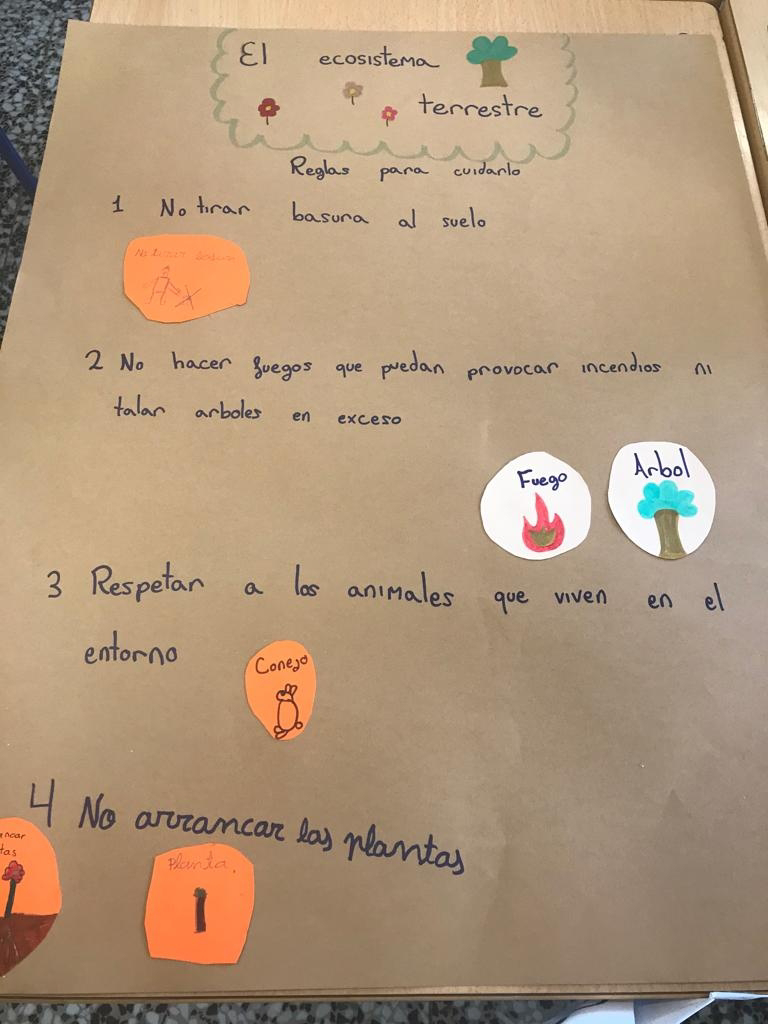 El ecosistema
terrestre
Reglas para cuidarlo
1 No tirar basura al suelo
No tirar basura
2 No hacer fuegos que puedan provocar incendios ni
talar arboles en exceso
Fuego
Arbol
3 Respetan a los animales que viven en el
entorno
Conejo
4 No arrancar las plantas
Planta